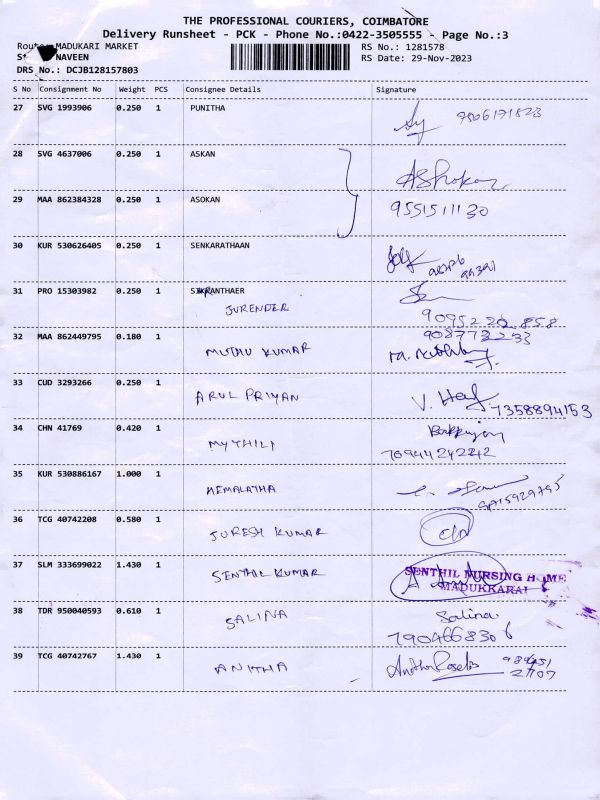 THE PROFESSIONAL COURIERS, COIMBATORE
Delivery Runsheet - PCK - Phone No.:0422-3505555 - Page No.:3
Route: MADUKARI MARKET RS No.: 1281578
NAVEEN RS Date: 29-Nov-2023
DRS No.: DCJB128157803
S No Consignment No Weight PCS Consignee Details Signature
27 SVG 1993906 0.250 1 PUNITHA
28 SVG 4637006 0.250 1 ASKAN
AShokan
29 MAA 862384328 0.250 1 ASOKAN
9551511130
30 KUR 530626405 0.250 1 SENKARATHAAN
31 PRO 15303982 0.250 1
JURENDER
9095220858
32 MAA 862449795 0.180 1 9087773233
MUTHU KUMAR
33 CUD 3293266 0.250 1
ARUL PRIYAN 7358894153
34 CHN 41769 0.420 1
MYTHILI
35 KUR 530886167 1.000 1
HEMALATHA
36 TCG 40742208 0.580 1
JURESH KUMAR
37 SLM 333699022 1.430 1 SENTHIL NURSING HOME
SENTHIL KUMAR MADUKKARAI
38 TDR 950040593 0.610 1 Salina
SALINA 7904668306
39 TCG 40742767 1.430 1
ANITHA